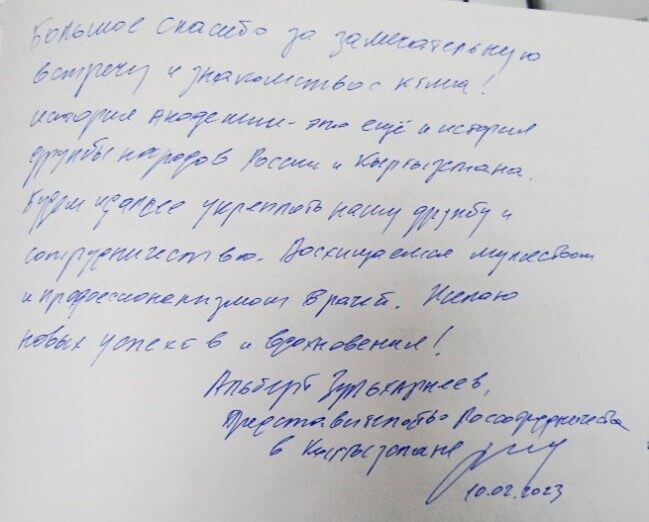 Большое спасибо за замечательную
встречу и знакомство с КГМА!
История Академии - это ещё и история
дружбы народов России и Кыргызстана.
Будем и дальше укреплять нашу дружбу и
сотрудничество. Восхищаемся мужеством
и профессионализмом врачей. Желаю
новых успехов и вдохновения!
Альберт Зулькарнеев,
Представительство Россотрудничества
в Кыргызстане
10.02.2023